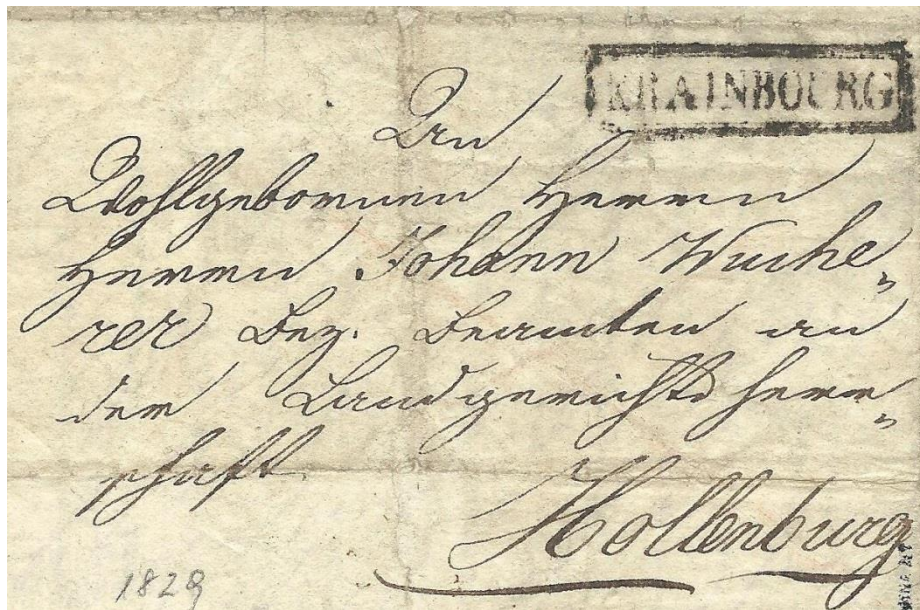 KRAINBOURG
An
Wohlgebornen Herrn
Herrn Johann Wuche„
rer Bez. Beamten an
der Landgerichts Herr„
schaft
Hollenburg
1829